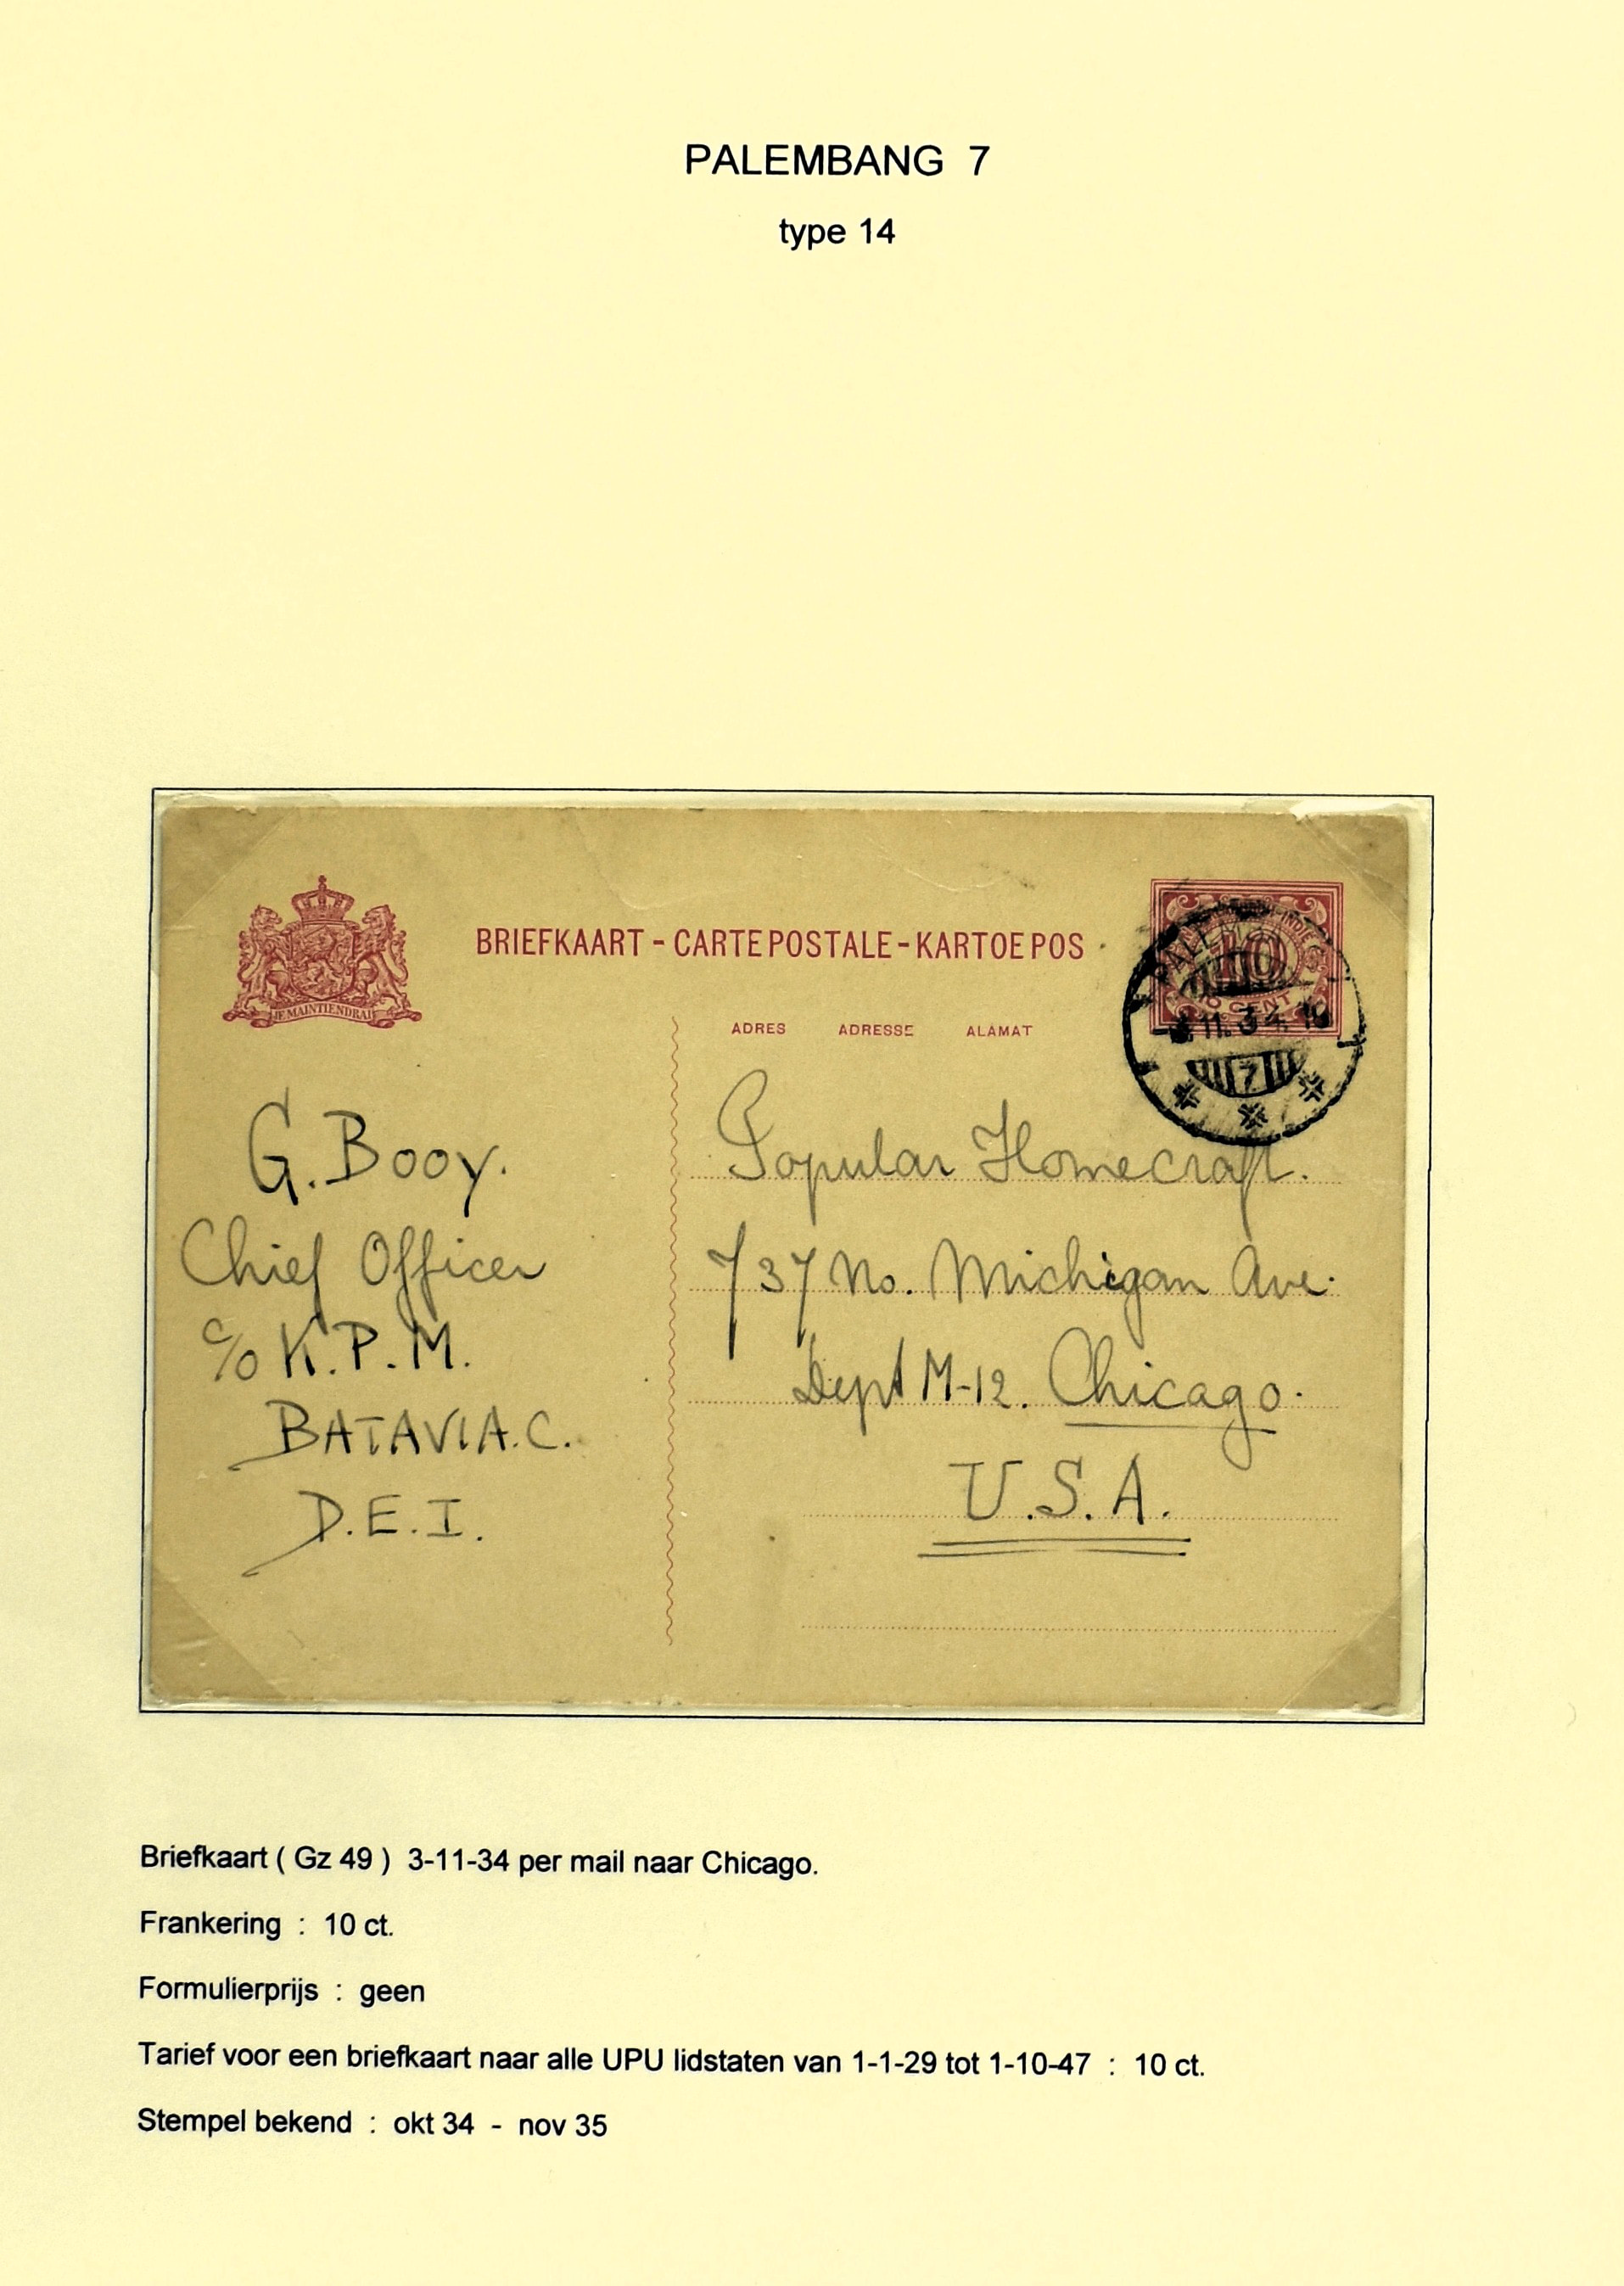 PALEMBANG 7
type 14
BRIEFKAART - CARTE POSTALE - KARTOE POS
JE MAINTIENDRAI
ADRES ADRESSE ALAMAT
10
CENT
PALEMB
11.34.
7
G. Booy.
Chief Officer
c/o K.P.M.
BATAVIA.C.
D.E.I.
Popular Homecraft.
737 No. Michigan Ave.
Dept M-12. Chicago.
U.S.A.
Briefkaart ( Gz 49 ) 3-11-34 per mail naar Chicago.
Frankering : 10 ct.
Formulierprijs : geen
Tarief voor een briefkaart naar alle UPU lidstaten van 1-1-29 tot 1-10-47 : 10 ct.
Stempel bekend : okt 34 - nov 35